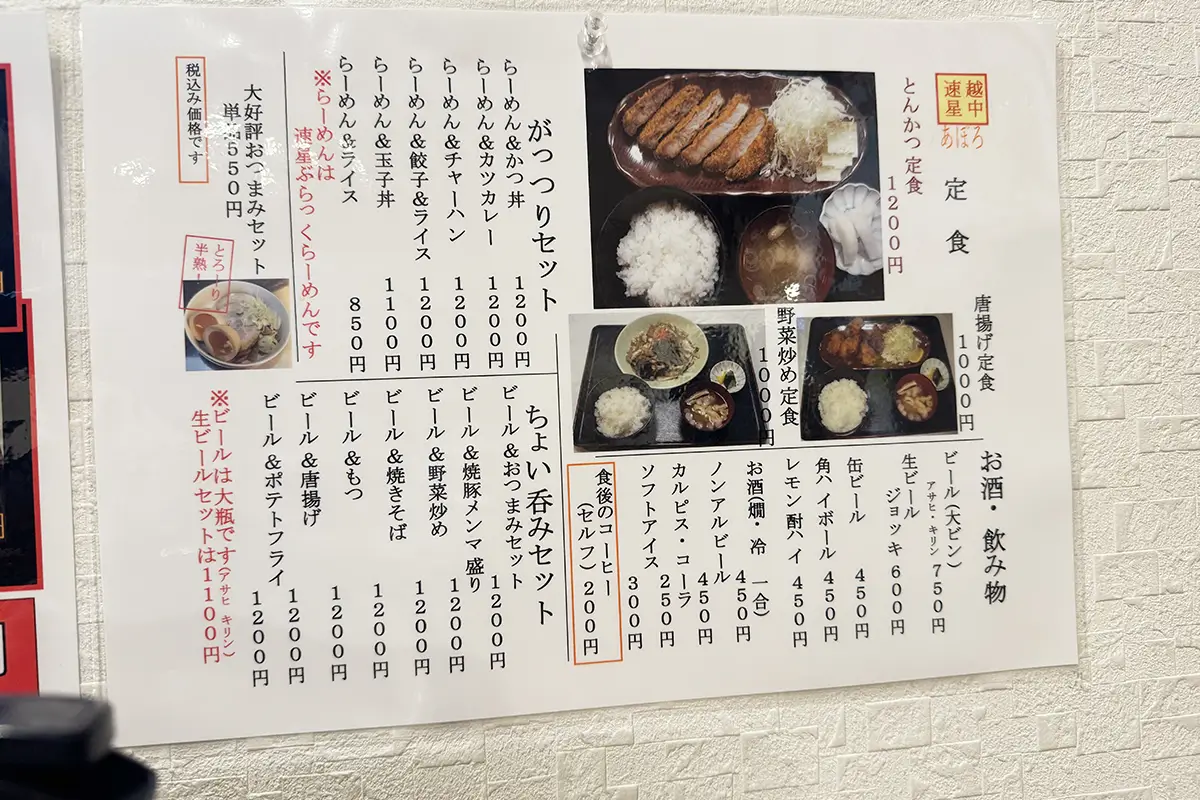 越中
速星
あぽろ
定食
とんかつ定食
1200円
唐揚げ定食
1000円
野菜炒め定食
1000円
お酒・飲み物
ビール(大ビン)
アサヒ・キリン 750円
生ビール
ジョッキ 600円
缶ビール 450円
角ハイボール 450円
レモン酎ハイ 450円
お酒(燗・冷 一合)
450円
ノンアルビール
450円
カルピス・コーラ
250円
ソフトアイス
300円
食後のコーヒー
(セルフ) 200円
がっつりセット
らーめん&かつ丼 1200円
らーめん&カツカレー 1200円
らーめん&チャーハン 1200円
らーめん&餃子&ライス 1200円
らーめん&玉子丼 1100円
らーめん&ライス 850円
※らーめんは
速星ぶらっくらーめんです
ちょい呑みセット
ビール&おつまみセット 1200円
ビール&焼豚メンマ盛り 1200円
ビール&野菜炒め 1200円
ビール&焼きそば 1200円
ビール&もつ 1200円
ビール&唐揚げ 1200円
ビール&ポテトフライ 1200円
※ビールは大瓶です(アサヒ キリン)
生ビールセットは1100円
大好評おつまみセット
単品550円
とろ〜り
半熟!
税込み価格です